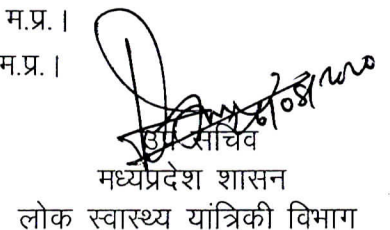 म.प्र. ।
म.प्र. ।
उप सचिव
मध्यप्रदेश शासन
लोक स्वास्थ्य यांत्रिकी विभाग